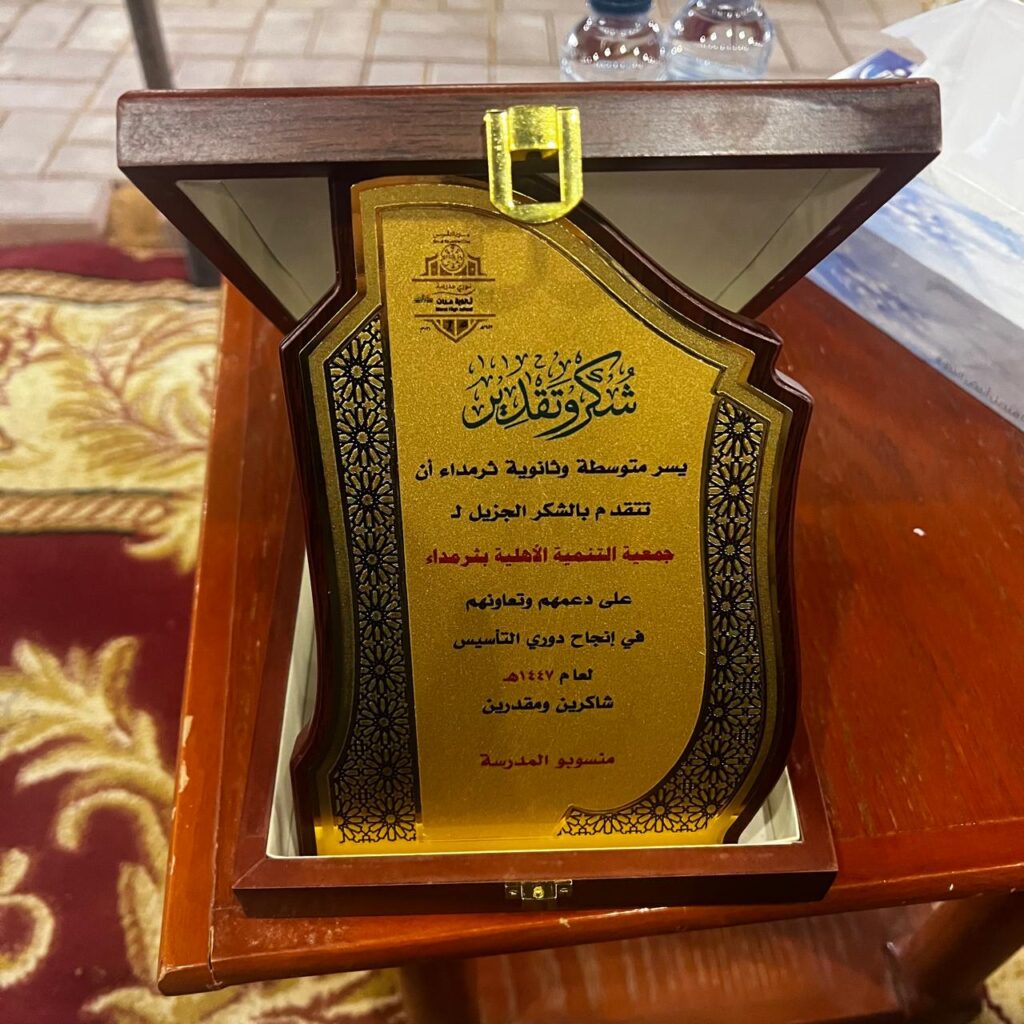 شكر وتقدير
يسر متوسطة وثانوية ثرمداء أن
تتقدم بالشكر الجزيل لـ
جمعية التنمية الأهلية بثرمداء
على دعمهم وتعاونهم
في إنجاح دوري التأسيس
لعام ١٤٤٧هـ
شاكرين ومقدرين
منسوبو المدرسة